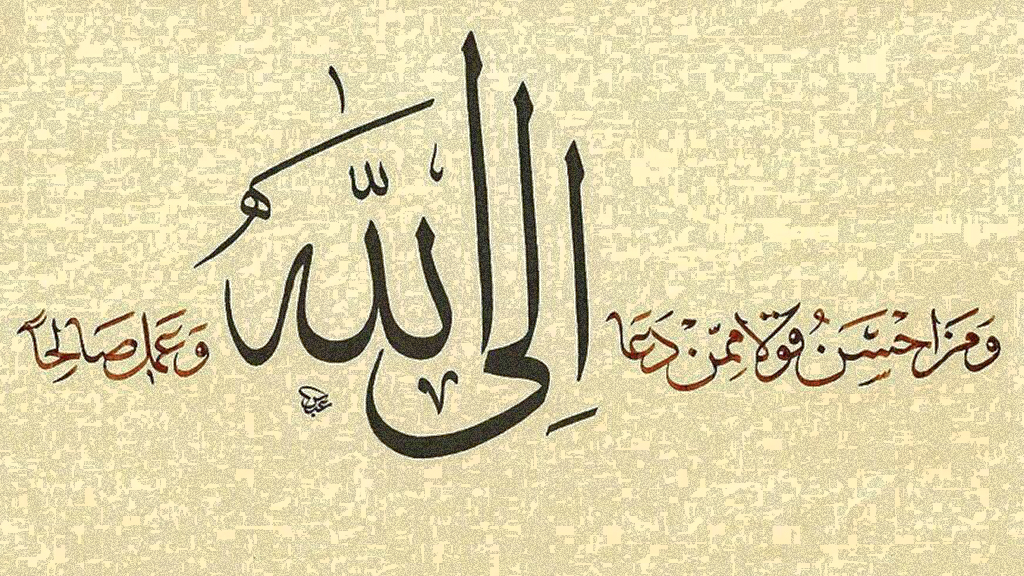 وَمَنْ أَحْسَنُ قَوْلًا مِمَّنْ دَعَا إِلَى اللهِ وَعَمِلَ صَالِحًا